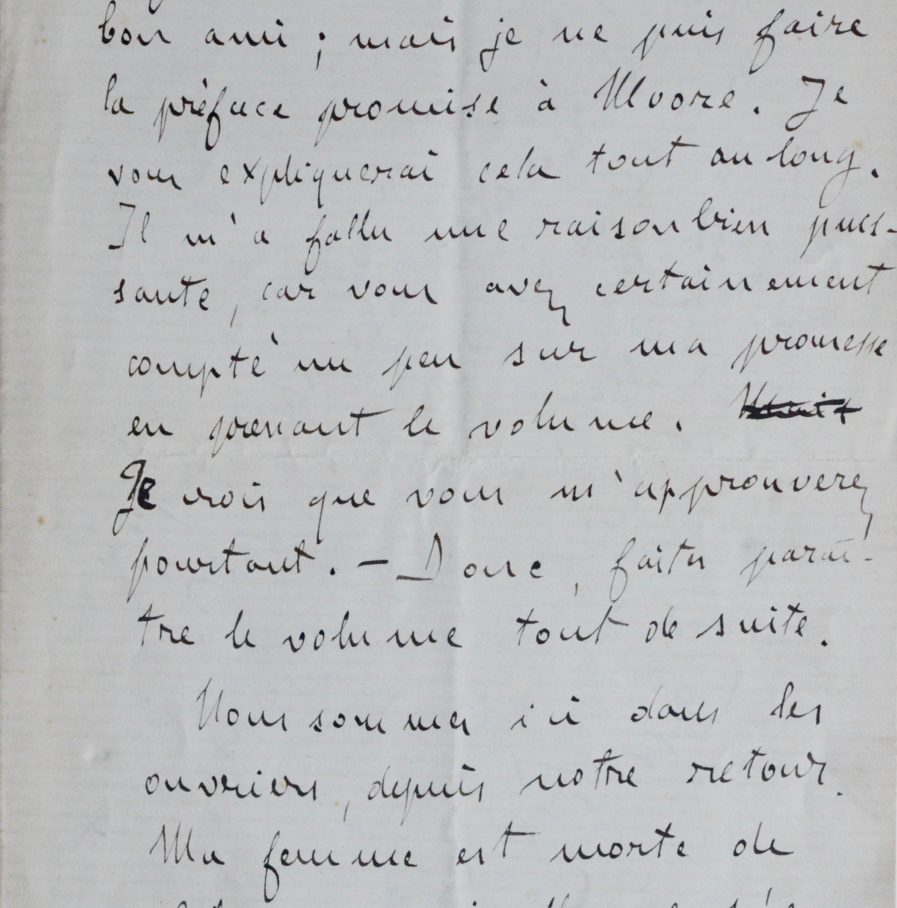 bon ami ; mais je ne puis faire
la préface promise à Moore. Je
vous expliquerai cela tout au long.
Il m'a fallu une raison bien puis-
sante, car vous avez certainement
compté un peu sur ma promesse
en prenant le volume.
Je crois que vous m'approuverez
pourtant. — Donc, faites paraî-
tre le volume tout de suite.
Nous sommes ici dans les
ouvriers, depuis notre retour.
Ma femme est morte de